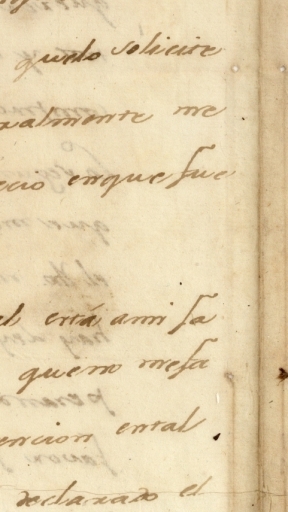 quelo solicite
ralmente me
ecio enque fue
el está ami fa
que no mefa
encion ental
declarado el